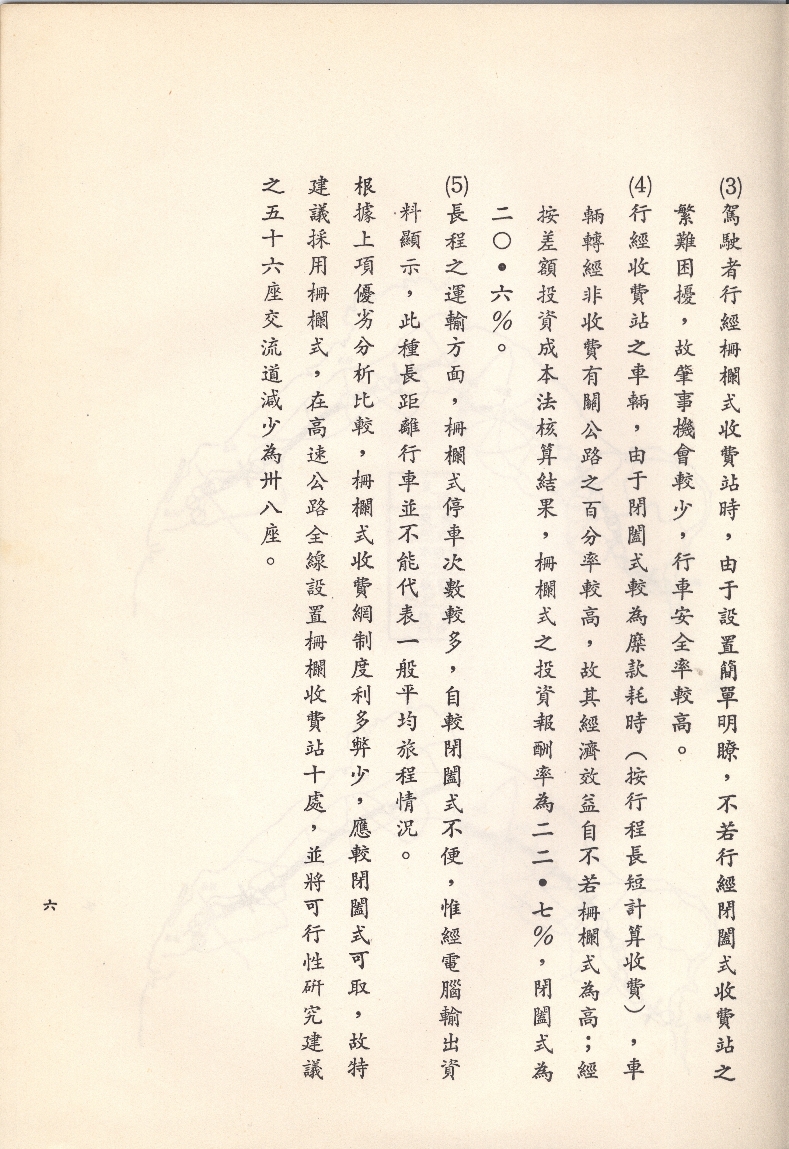 (3)駕駛者行經柵欄式收費站時，由于設置簡單明瞭，不若行經閉闔式收費站之
繁難困擾，故肇事機會較少，行車安全率較高。
(4)行經收費站之車輛，由于閉闔式較為糜款耗時（按行程長短計算收費），車
輛轉經非收費有關公路之百分率較高，故其經濟效益自不若柵欄式為高；經
按差額投資成本法核算結果，柵欄式之投資報酬率為二二•七％，閉闔式為
二〇•六％。
(5)長程之運輸方面，柵欄式停車次數較多，自較閉闔式不便，惟經電腦輸出資
料顯示，此種長距離行車並不能代表一般平均旅程情況。
根據上項優劣分析比較，柵欄式收費網制度利多弊少，應較閉闔式可取，故特
建議採用柵欄式，在高速公路全線設置柵欄收費站十處，並將可行性研究建議
之五十六座交流道減少為卅八座。
六